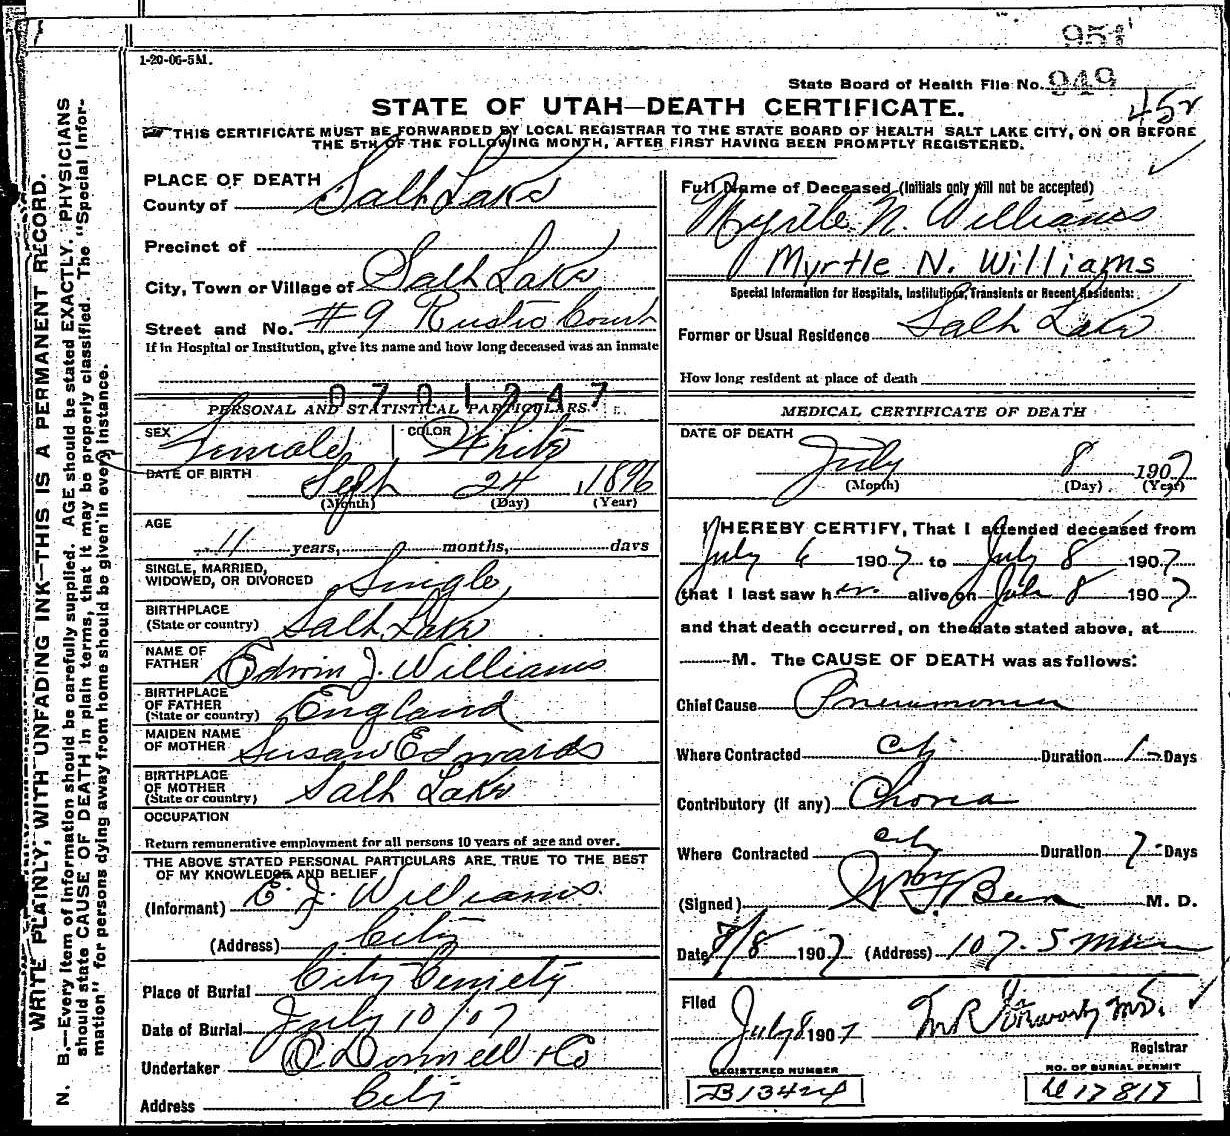 951
1-20-06-5M.
State Board of Health File No. 949
452
STATE OF UTAH—DEATH CERTIFICATE.
THIS CERTIFICATE MUST BE FORWARDED BY LOCAL REGISTRAR TO THE STATE BOARD OF HEALTH SALT LAKE CITY, ON OR BEFORE
THE 5TH OF THE FOLLOWING MONTH, AFTER FIRST HAVING BEEN PROMPTLY REGISTERED.
WRITE PLAINLY, WITH UNFADING INK—THIS IS A PERMANENT RECORD.
N. B.—Every item of information should be carefully supplied. AGE should be stated EXACTLY. PHYSICIANS
should state CAUSE OF DEATH in plain terms, that it may be properly classified. The "Special Infor-
mation" for persons dying away from home should be given in every instance.
PLACE OF DEATH
County of Salt Lake
Precinct of
City, Town or Village of Salt Lake
Street and No. #9 Rustic Court
If in Hospital or Institution, give its name and how long deceased was an inmate
0701247
PERSONAL AND STATISTICAL PARTICULARS.
SEX Female COLOR White
DATE OF BIRTH Sept 24, 1896
(Month) (Day) (Year)
AGE
11 years, months, days
SINGLE, MARRIED,
WIDOWED, OR DIVORCED Single
BIRTHPLACE
(State or country) Salt Lake
NAME OF
FATHER Edwin J. Williams
BIRTHPLACE
OF FATHER
(State or country) England
MAIDEN NAME
OF MOTHER Susan Edwards
BIRTHPLACE
OF MOTHER
(State or country) Salt Lake
OCCUPATION
Return remunerative employment for all persons 10 years of age and over.
THE ABOVE STATED PERSONAL PARTICULARS ARE TRUE TO THE BEST
OF MY KNOWLEDGE AND BELIEF
(Informant) E. J. Williams
(Address) City
Place of Burial City Cemetery
Date of Burial July 10/07
Undertaker O'Donnell & Co
Address City
Full Name of Deceased (Initials only will not be accepted)
Myrtle N. Williams
Myrtle N. Williams
Special Information for Hospitals, Institutions, Transients or Recent Residents:
Former or Usual Residence Salt Lake
How long resident at place of death
MEDICAL CERTIFICATE OF DEATH
DATE OF DEATH
July 8 1907
(Month) (Day) (Year)
I HEREBY CERTIFY, That I attended deceased from
July 6 1907 to July 8 1907
that I last saw her alive on July 8 1907
and that death occurred, on the date stated above, at
M. The CAUSE OF DEATH was as follows:
Chief Cause Pneumonia
Where Contracted City Duration Days
Contributory (if any) Chorea
Where Contracted City Duration 7 Days
(Signed) M. D.
Date 7/8 1907 (Address) 107 S Main
Filed
July 8 1907
Registrar
REGISTERED NUMBER
B13424
NO. OF BURIAL PERMIT
17819